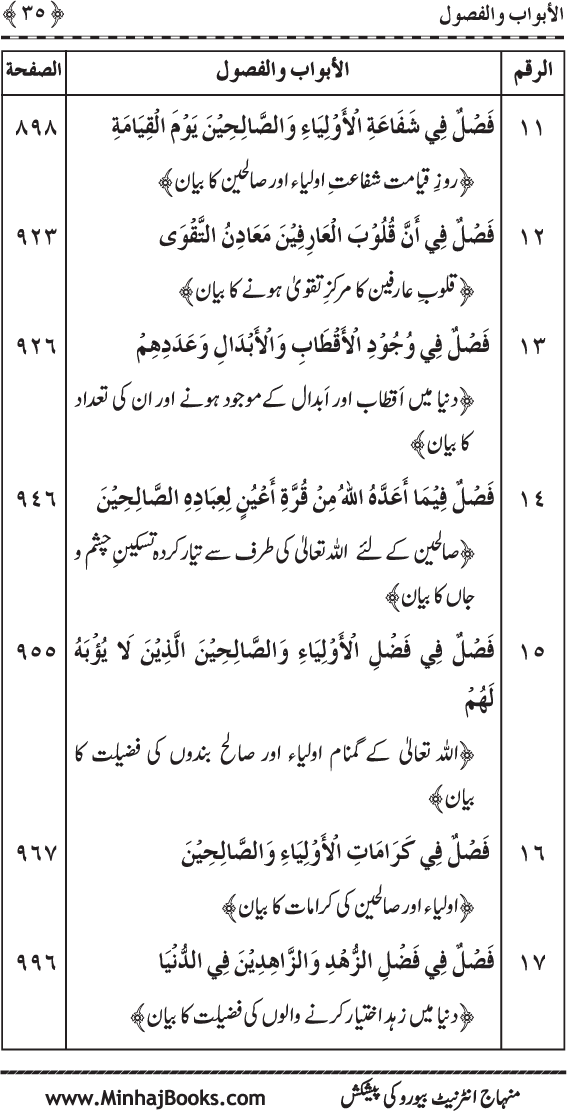 الأبواب والفصول ﴿٣٥﴾
الرقم الأبواب والفصول الصفحة
١١ فَصْلٌ فِي شَفَاعَةِ الْأَوْلِيَاءِ وَالصَّالِحِيْنَ يَوْمَ الْقِيَامَةِ ٨٩٨
﴿روزِ قیامت شفاعتِ اولیاء اور صالحین کا بیان﴾
١٢ فَصْلٌ فِي أَنَّ قُلُوْبَ الْعَارِفِيْنَ مَعَادِنُ التَّقْوَى ٩٢٣
﴿قلوبِ عارفین کا مرکزِ تقویٰ ہونے کا بیان﴾
١٣ فَصْلٌ فِي وُجُوْدِ الْأَقْطَابِ وَالْأَبْدَالِ وَعَدَدِهِمْ ٩٢٦
﴿دنیا میں اَقطاب اور اَبدال کے موجود ہونے اور ان کی تعداد
کا بیان﴾
١٤ فَصْلٌ فِيْمَا أَعَدَّهُ اللهُ مِنْ قُرَّةِ أَعْيُنٍ لِعِبَادِهِ الصَّالِحِيْنَ ٩٤٦
﴿صالحین کے لئے اللہ تعالیٰ کی طرف سے تیار کردہ تسکینِ چشم و
جاں کا بیان﴾
١٥ فَصْلٌ فِي فَضْلِ الْأَوْلِيَاءِ وَالصَّالِحِيْنَ الَّذِيْنَ لَا يُؤْبَهُ ٩٥٥
لَهُمْ
﴿اللہ تعالیٰ کے گمنام اولیاء اور صالح بندوں کی فضیلت کا
بیان﴾
١٦ فَصْلٌ فِي كَرَامَاتِ الْأَوْلِيَاءِ وَالصَّالِحِيْنَ ٩٦٧
﴿اولیاء اور صالحین کی کرامات کا بیان﴾
١٧ فَصْلٌ فِي فَضْلِ الزُّهْدِ وَالزَّاهِدِيْنَ فِي الدُّنْيَا ٩٩٦
﴿دنیا میں زہد اختیار کرنے والوں کی فضیلت کا بیان﴾
منہاج انٹرنیٹ بیورو کی پیشکش www.MinhajBooks.com